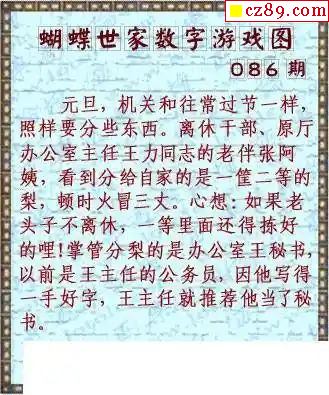 cz89.com
蝴蝶世家数字游戏图
086期
元旦，机关和往常过节一样，
照样要分些东西。离休干部、原厅
办公室主任王力同志的老伴张阿
姨，看到分给自家的是一筐二等的
梨，顿时火冒三丈。心想：如果老
头子不离休，一等里面还得拣好
的哩!掌管分梨的是办公室王秘书，
以前是王主任的公务员，因他写得
一手好字，王主任就推荐他当了秘
书。